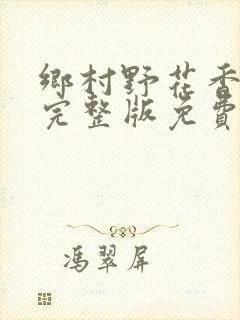 鄉村野花香
完整版免費
馮翠屏